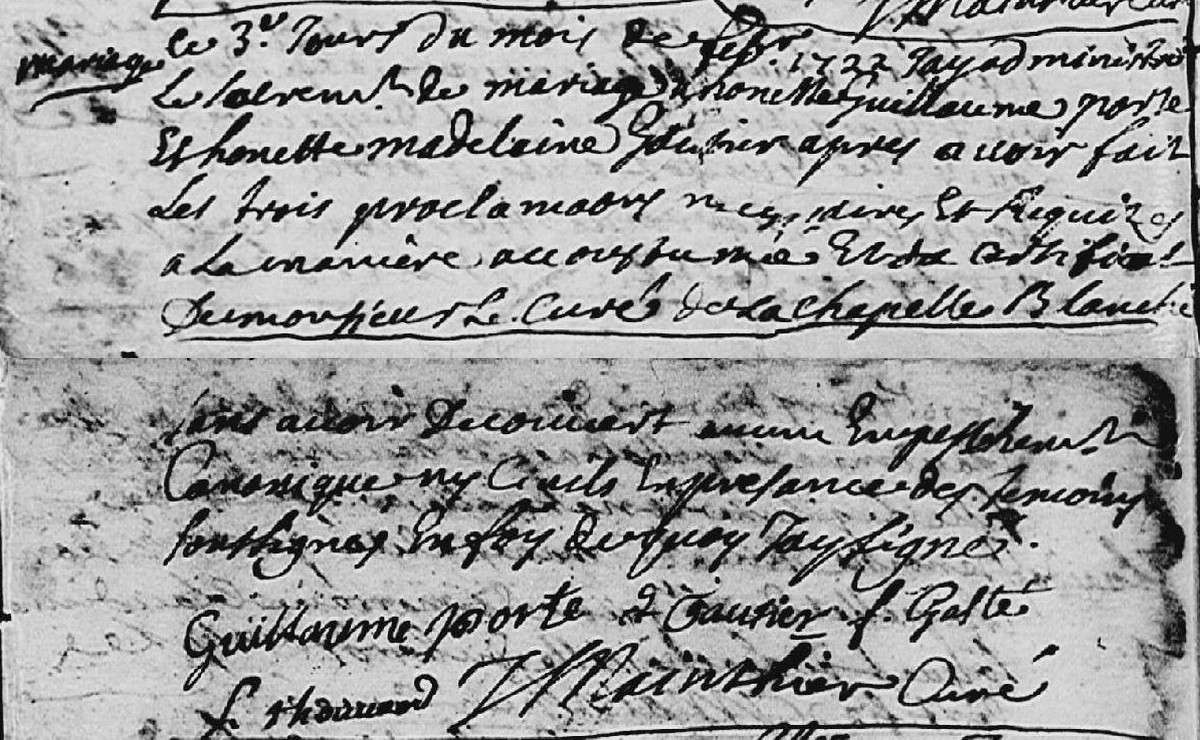 mariage
Le 3e Jours du mois de febr. 1722 Jay administré
Le Sacremt de mariage a honette Guillaume porte
Et honette madelaine Gautier apres avoir fait
Les trois proclamaons necessaires Et Requizes
a La maniere accoustumée Et du certificat
De monsieur Le Curé de La chapelle Blanche
sans avoir Decouvert aucun Empeschemt
Canonique ny Civils En presance des temoins
soubsignes En foy de quoy Jay signé.
Guillaume porte Gautier f. Galté
f thouvard Curé